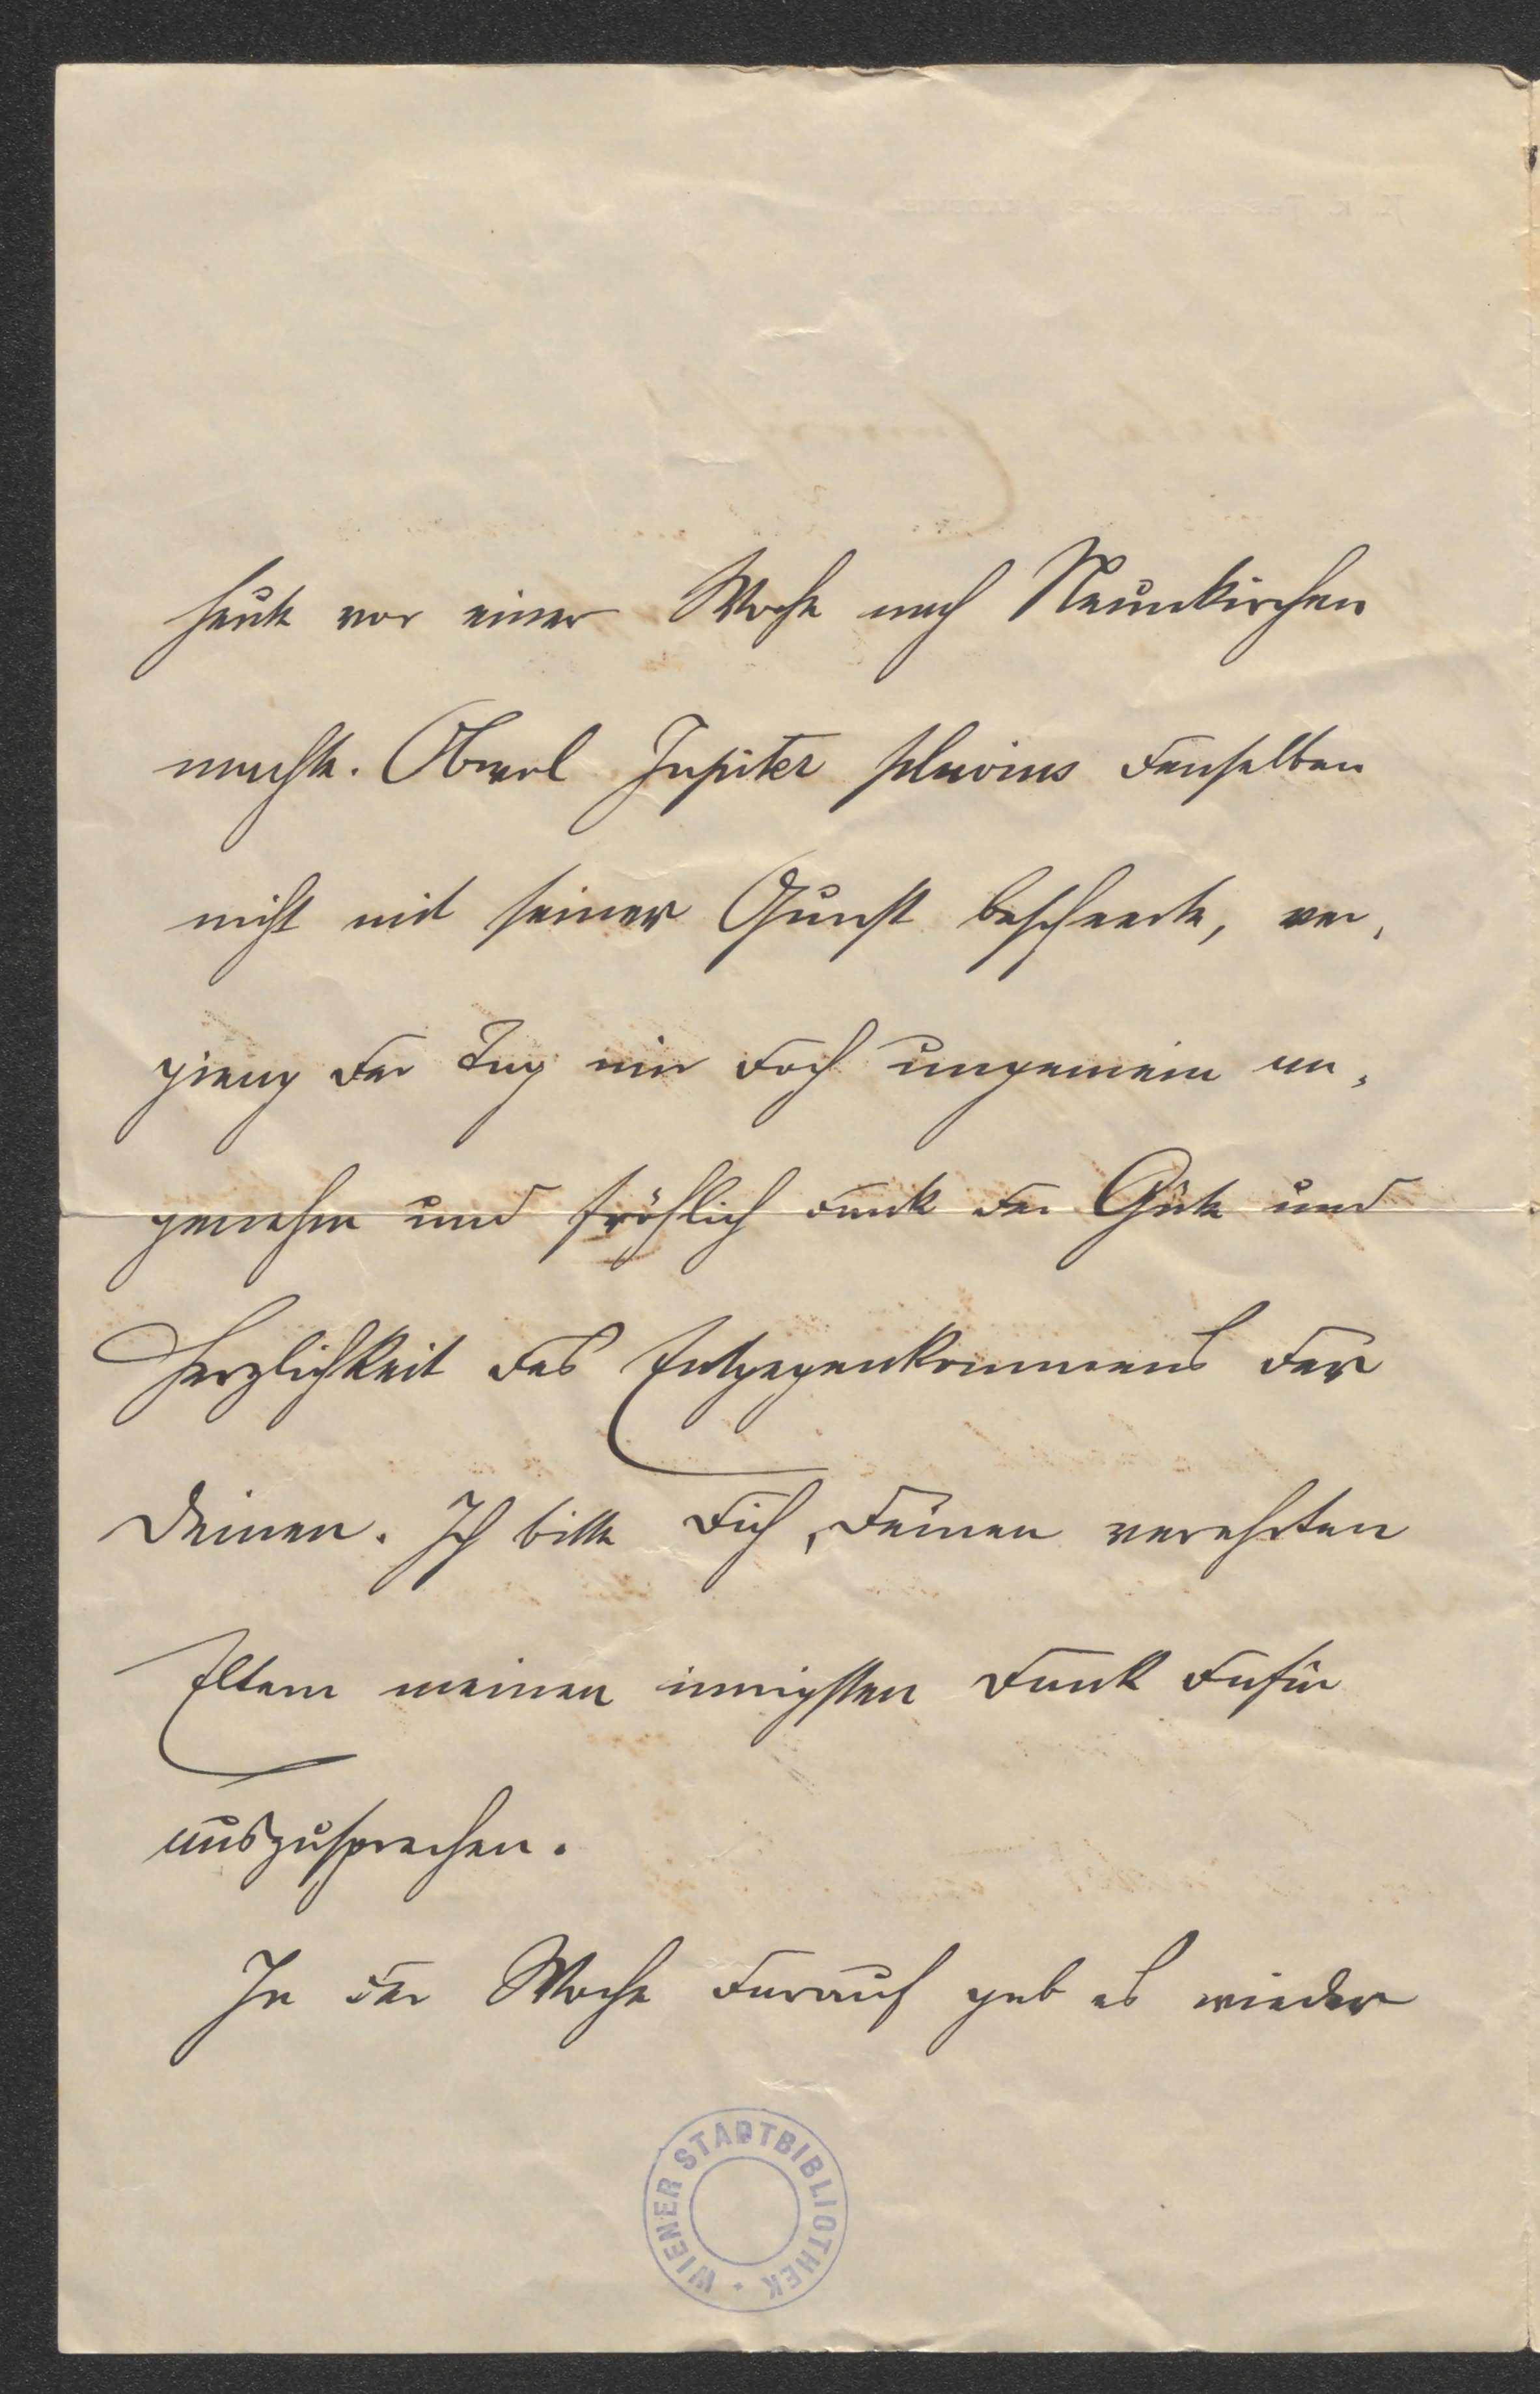 heute vor einer Woche nach Neunkirchen
machte. Obwol Jupiter pluvius denselben
nicht mit seiner Gunst bescheerte, ver-
gieng der Tag mir doch ungemein an-
genehm und fröhlich dank der Güte und
Herzlichkeit des Entgegenkommens der
Deinen. Ich bitte Dich, Deinen verehrten
Eltern meinen innigsten Dank dafür
auszusprechen.
In der Woche darauf gab es wieder
WIENER STADTBIBLIOTHEK